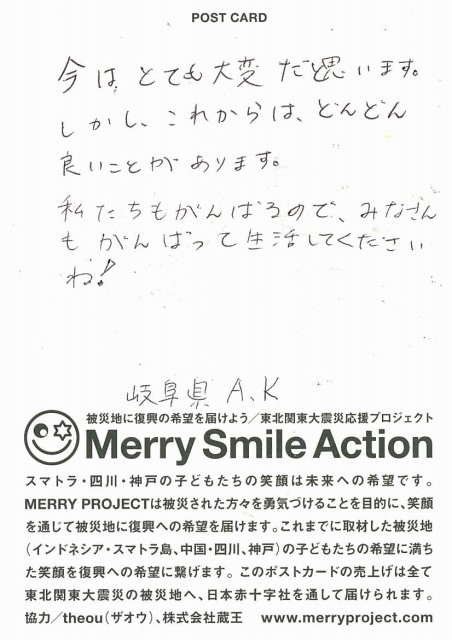 POST CARD
今は、とても大変だ思います。
しかし、これからは、どんどん
良いことがあります。
私たちもがんばるので、みなさん
もがんばって生活してください
ね!
岐阜県 A.K
被災地に復興の希望を届けよう／東北関東大震災応援プロジェクト
Merry Smile Action
スマトラ・四川・神戸の子どもたちの笑顔は未来への希望です。
MERRY PROJECTは被災された方々を勇気づけることを目的に、笑顔
を通じて被災地に復興への希望を届けます。これまでに取材した被災地
（インドネシア・スマトラ島、中国・四川、神戸）の子どもたちの希望に満ち
た笑顔を復興への希望に繋げます。このポストカードの売上げは全て
東北関東大震災の被災地へ、日本赤十字社を通して届けられます。
協力／theou（ザオウ）、株式会社蔵王　www.merryproject.com